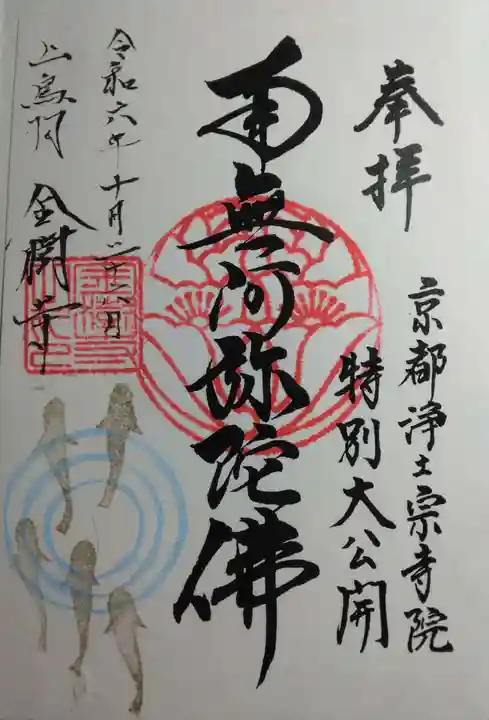 奉拝
京都浄土宗寺院
特別大公開
南無阿弥陀佛
令和六年十月二十六日
上鳥羽 全勝寺